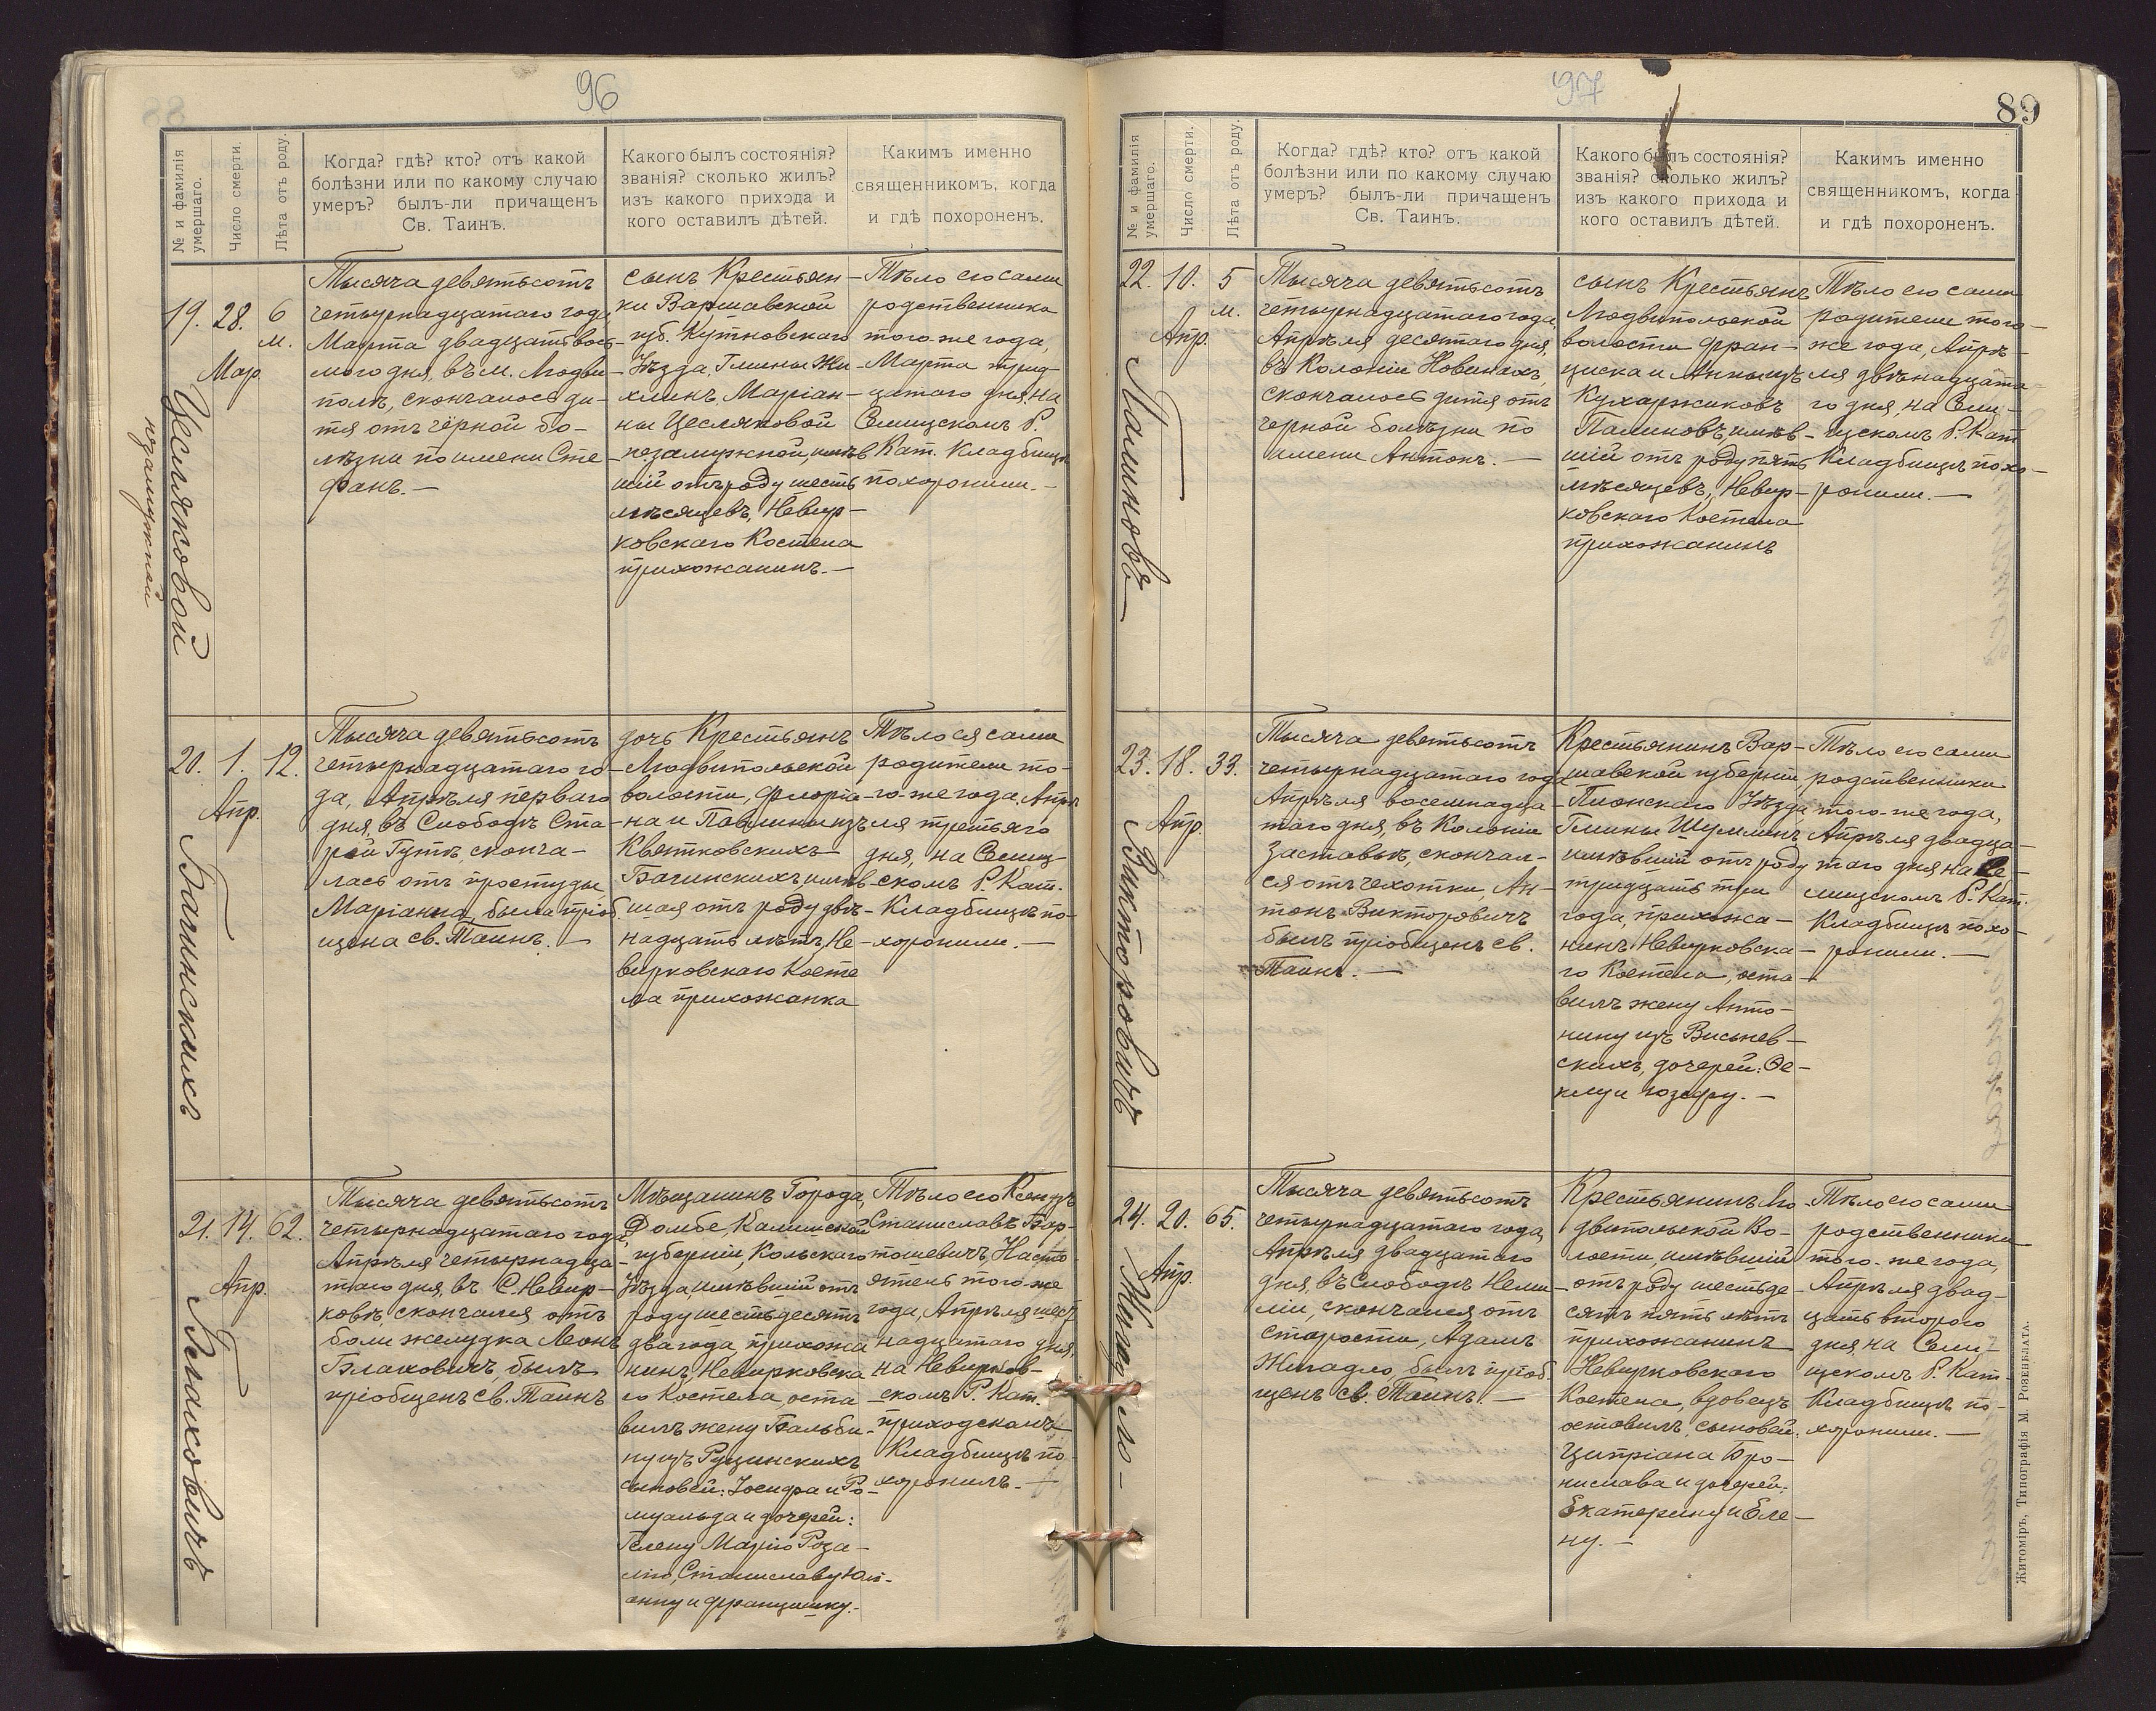 96
№ и фамилія умершаго.
Число смерти.
Лѣта отъ роду.
Когда? гдѣ? кто? отъ какой
болѣзни или по какому случаю
умеръ? былъ-ли причащенъ
Св. Таинъ.
Какого былъ состоянія?
званія? сколько жилъ?
изъ какого прихода и
кого оставилъ дѣтей.
Какимъ именно
священникомъ, когда
и гдѣ похороненъ.
19. 28. 6
м.
Мар.
Цесляковой
незамужней
Тысяча девятьсотъ
четырнадцатаго года
Марта двадцать вось-
мого дня, въ м. Людви
полѣ, скончалось ди-
тя отъ чёрной бо-
лѣзни по имени Сте
фанъ.—
сынъ Крестьян-
ки Варшавской
губ. Кутновскаго
Уѣзда, Гмины Жи-
хлинъ, Маріан-
ны Цесляковой
незамужной, имѣв
шій отъ роду шесть
мѣсяцевъ, Невир-
ковскаго Костела
прихожанинъ.—
Тѣло его сами
родственники
того-же года,
Марта трид-
цатаго дня, на
Селищскомъ Р.
Кат. Кладбищѣ
похоронили.—
20. 1. 12.
Апр.
Багинскихъ
Тысяча девятьсотъ
четырнадцатаго го-
да, Апрѣля перваго
дня, въ Слободѣ Ста-
рой Гутѣ, сконча-
лась отъ простуды
Маріанна, была пріоб
щена св. Таинъ.—
дочь Крестьянъ
Людвипольской
волости, Флоріа-
на и Павлины изъ
Квятковскихъ
Багинскихъ, имѣв-
шая отъ роду двѣ-
надцать лѣтъ, Не-
вирковскаго Косте
ла прихожанка
Тѣло ея сами
родители то-
го-же года, Апрѣ
ля третьяго
дня, на Селищ-
скомъ Р. Кат.
Кладбищѣ по-
хоронили.—
21. 14. 62.
Апр.
Блаховичъ
Тысяча девятьсотъ
четырнадцатаго года,
Апрѣля четырнадца-
таго дня, въ С. Невир-
ковѣ, скончался отъ
боли желудка Леонъ
Блаховичъ, былъ
пріобщенъ св. Таинъ
Мѣщанинъ Города
Домбе, Калишской
губерніи, Кольскаго
Уѣзда имѣвшій отъ
роду шестьдесятъ
два года, прихожа
нинъ, Невирковска
го Костела, оста
вилъ жену Бальби-
ну изъ Руцинскихъ
сыновей: Іосифа и Ро-
муальда и дочерей:
Гелену Марію Роза-
лію, Станиславу Юлі-
анну и Францишку.—
Тѣло его Ксендзъ
Станиславъ Бар-
тошевичъ, Насто
ятель того-же
года, Апрѣля шест
надцатаго дня,
на Невирков-
скомъ Р. Кат.
приходскомъ
Кладбищѣ по
хоронилъ.—
97
89
№ и фамилія умершаго.
Число смерти.
Лѣта отъ роду.
Когда? гдѣ? кто? отъ какой
болѣзни или по какому случаю
умеръ? былъ-ли причащенъ
Св. Таинъ.
Какого былъ состоянія?
званія? сколько жилъ?
изъ какого прихода и
кого оставилъ дѣтей.
Какимъ именно
священникомъ, когда
и гдѣ похороненъ.
22. 10. 5
м.
Апр.
Палиновъ
Тысяча девятьсотъ
четырнадцатаго года,
Апрѣля десятаго дня,
въ Колоніи Новинахъ,
скончалось дитя отъ
черной болѣзни по
имени Антонъ.—
сынъ Крестьянъ
Людвипольской
волости Фран-
циска и Анны изъ
Кухаржиковъ
Палиновъ, имѣв-
шій отъ роду пять
мѣсяцевъ, Невир-
ковскаго Костела
прихожанинъ
Тѣло его сами
родители того-
же года, Апрѣ-
ля двѣнадцата-
го дня, на Сели-
щскомъ Р. Кат.
Кладбищѣ похо-
ронили.—
23. 18. 33.
Апр.
Викторовичъ
Тысяча девятьсотъ
четырнадцатаго года
Апрѣля восемнадца-
таго дня, въ Колоніи
Заставьѣ, скончал-
ся отъ чахотки, Ан-
тонъ Викторовичъ
былъ пріобщенъ св.
Таинъ.—
Крестьянинъ Вар-
шавской губерніи,
Плонскаго Уѣзда
Гмины Шумлинъ,
имѣвшій отъ роду
тридцать три
года, прихожа-
нинъ Невирковска-
го Костела, оста-
вилъ жену Анто-
нину изъ Виснев-
скихъ, дочерей: Ѳе-
клу и Іозефу.—
Тѣло его сами
родственники
того-же года,
Апрѣля двадца-
таго дня на Се-
лищскомъ Р. Кат.
Кладбищѣ похо-
ронили.—
24. 20. 65.
Апр.
Тысяча девятьсотъ
четырнадцатаго года,
Апрѣля двадцатаго
дня, въ Слободѣ Неми-
ліи, скончался отъ
старости, Адамъ
Жигадло, былъ пріоб
щенъ св. Таинъ.—
Крестьянинъ Лю
двипольской Во-
лости, имѣвшій
отъ роду шестьде-
сятъ пять лѣтъ
прихожанинъ
Невирковскаго
Костела, вдовецъ
оставилъ, сыновей:
Ципріана Бро-
нислава и дочерей:
Екатерину и Еле-
ну.—
Тѣло его сами
родственники
того-же года,
Апрѣля двад-
цать второго
дня, на Сели-
щскомъ Р. Кат.
Кладбищѣ по-
хоронили.—
Житоміръ, Типографія М. Розенблата.